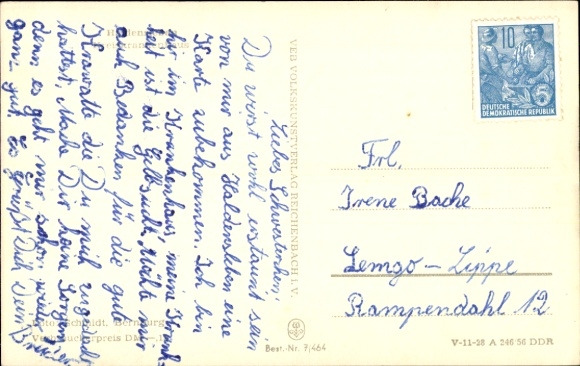 Liebes Schwesterchen!
Du wirst wohl erstaunt sein
von mir aus Haldensleben eine
Karte zubekommen. Ich bin
hir im Krankenhaus, meine Krank-
heit ist die Gelbsucht. Möchte mir
auch Bedanken für die gute
die Du mich
hattest. Mache Dir keine Sorgen
denn es geht mir schon wieder
ganz gut, es grüßt Dich Dein Bruder
VEB VOLKSKUNSTVERLAG REICHENBACH I. V.
Foto: Schmidt, Bernburg
Verbraucherpreis DM
Best.-Nr. 7/464
10
5
DEUTSCHE
DEMOKRATISCHE REPUBLIK
Frl.
Irene Bache
Lemgo-Lippe
Rampendahl 12
V-11-28 A 246 56 DDR